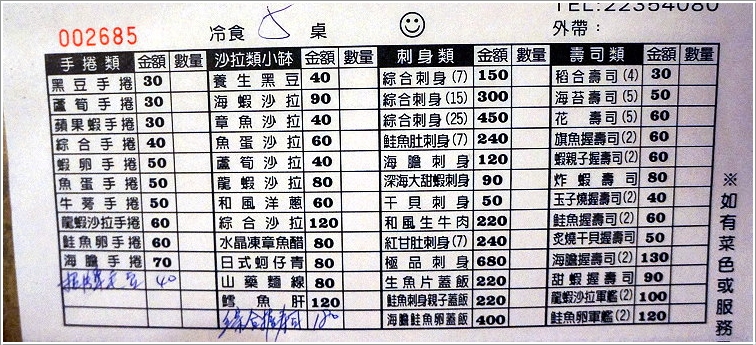 TEL:22354080
002685 冷食 桌 外帶:
手捲類 金額 數量 沙拉類小缽 金額 數量 刺身類 金額 數量 壽司類 金額 數量
黑豆手捲 30 養生黑豆 40 綜合刺身(7) 150 稻合壽司(4) 30
蘆筍手捲 30 海蝦沙拉 90 綜合刺身(15) 300 海苔壽司(5) 50
蘋果蝦手捲 30 章魚沙拉 40 綜合刺身(25) 450 花壽司(5) 60
綜合手捲 40 魚蛋沙拉 60 鮭魚肚刺身(7) 240 旗魚握壽司(2) 60
蝦卵手捲 50 蘆筍沙拉 40 海膽刺身 120 蝦親子握壽司(2) 60
魚蛋手捲 50 龍蝦沙拉 80 深海大甜蝦刺身 90 炸蝦壽司 80
牛蒡手捲 50 和風洋蔥 60 干貝刺身 50 玉子燒握壽司(2) 40
龍蝦沙拉手捲 60 綜合沙拉 120 和風生牛肉 220 鮭魚握壽司(2) 60
鮭魚卵手捲 60 水晶凍章魚醋 80 紅甘肚刺身(7) 240 炙燒干貝握壽司 50
海膽手捲 70 日式蚵仔青 80 極品刺身 680 海膽握壽司(2) 130
40 山藥麵線 80 生魚片蓋飯 220 甜蝦握壽司 90
鱈魚肝 120 鮭魚刺身親子蓋飯 220 龍蝦沙拉軍艦(2) 100
綜合握壽司 180 海膽鮭魚卵蓋飯 400 鮭魚卵軍艦(2) 120
※如有菜色或服務